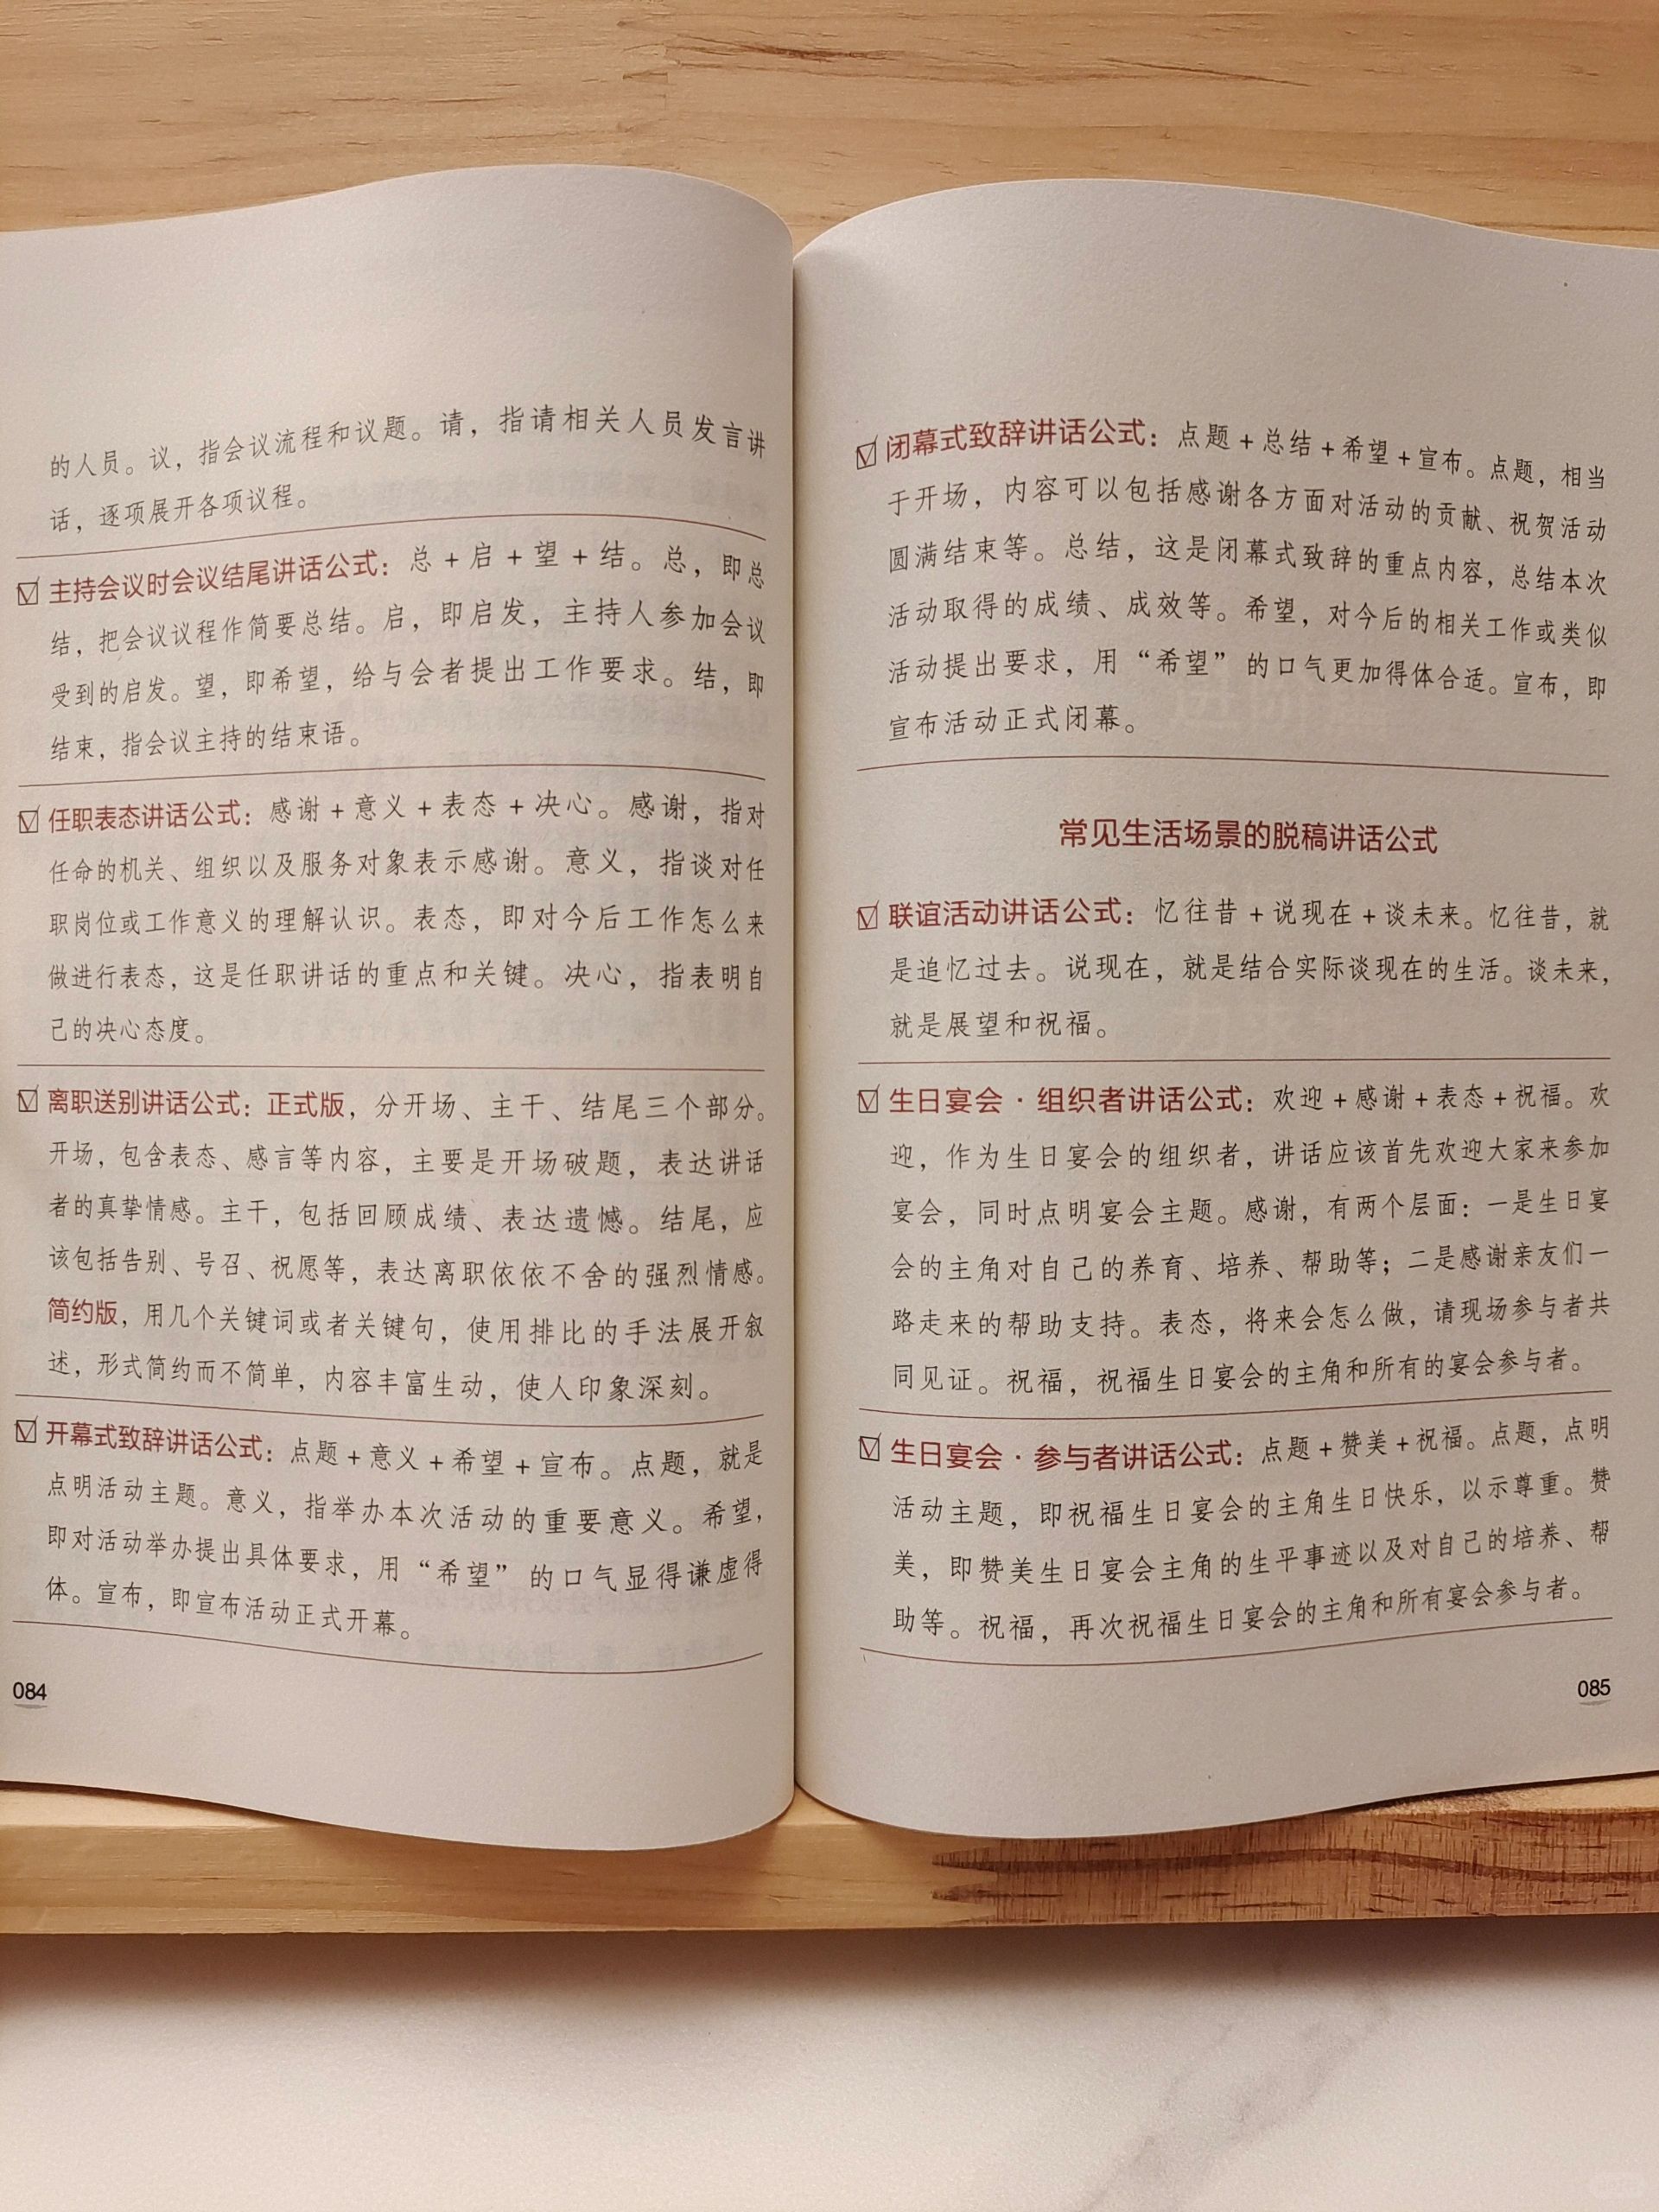 的人员。议，指会议流程和议题。请，指请相关人员发言讲
话，逐项展开各项议程。
主持会议时会议结尾讲话公式：总+启+望+结。总，即总
结，把会议议程作简要总结。启，即启发，主持人参加会议
受到的启发。望，即希望，给与会者提出工作要求。结，即
结束，指会议主持的结束语。
任职表态讲话公式：感谢+意义+表态+决心。感谢，指对
任命的机关、组织以及服务对象表示感谢。意义，指谈对任
职岗位或工作意义的理解认识。表态，即对今后工作怎么来
做进行表态，这是任职讲话的重点和关键。决心，指表明自
己的决心态度。
离职送别讲话公式：正式版，分开场、主干、结尾三个部分。
开场，包含表态、感言等内容，主要是开场破题，表达讲话
者的真挚情感。主干，包括回顾成绩、表达遗憾。结尾，应
该包括告别、号召、祝愿等，表达离职依依不舍的强烈情感。
简约版，用几个关键词或者关键句，使用排比的手法展开叙
述，形式简约而不简单，内容丰富生动，使人印象深刻。
开幕式致辞讲话公式：点题+意义+希望+宣布。点题，就是
点明活动主题。意义，指举办本次活动的重要意义。希望，
即对活动举办提出具体要求，用“希望”的口气显得谦虚得
体。宣布，即宣布活动正式开幕。
084
闭幕式致辞讲话公式：点题+总结+希望+宣布。点题，相当
于开场，内容可以包括感谢各方面对活动的贡献、祝贺活动
圆满结束等。总结，这是闭幕式致辞的重点内容，总结本次
活动取得的成绩、成效等。希望，对今后的相关工作或类似
活动提出要求，用“希望”的口气更加得体合适。宣布，即
宣布活动正式闭幕。
常见生活场景的脱稿讲话公式
联谊活动讲话公式：忆往昔+说现在+谈未来。忆往昔，就
是追忆过去。说现在，就是结合实际谈现在的生活。谈未来，
就是展望和祝福。
生日宴会·组织者讲话公式：欢迎+感谢+表态+祝福。欢
迎，作为生日宴会的组织者，讲话应该首先欢迎大家来参加
宴会，同时点明宴会主题。感谢，有两个层面：一是生日宴
会的主角对自己的养育、培养、帮助等；二是感谢亲友们一
路走来的帮助支持。表态，将来会怎么做，请现场参与者共
同见证。祝福，祝福生日宴会的主角和所有的宴会参与者。
生日宴会·参与者讲话公式：点题+赞美+祝福。点题，点明
活动主题，即祝福生日宴会的主角生日快乐，以示尊重。赞
美，即赞美生日宴会主角的生平事迹以及对自己的培养、帮
助等。祝福，再次祝福生日宴会的主角和所有宴会参与者。
085